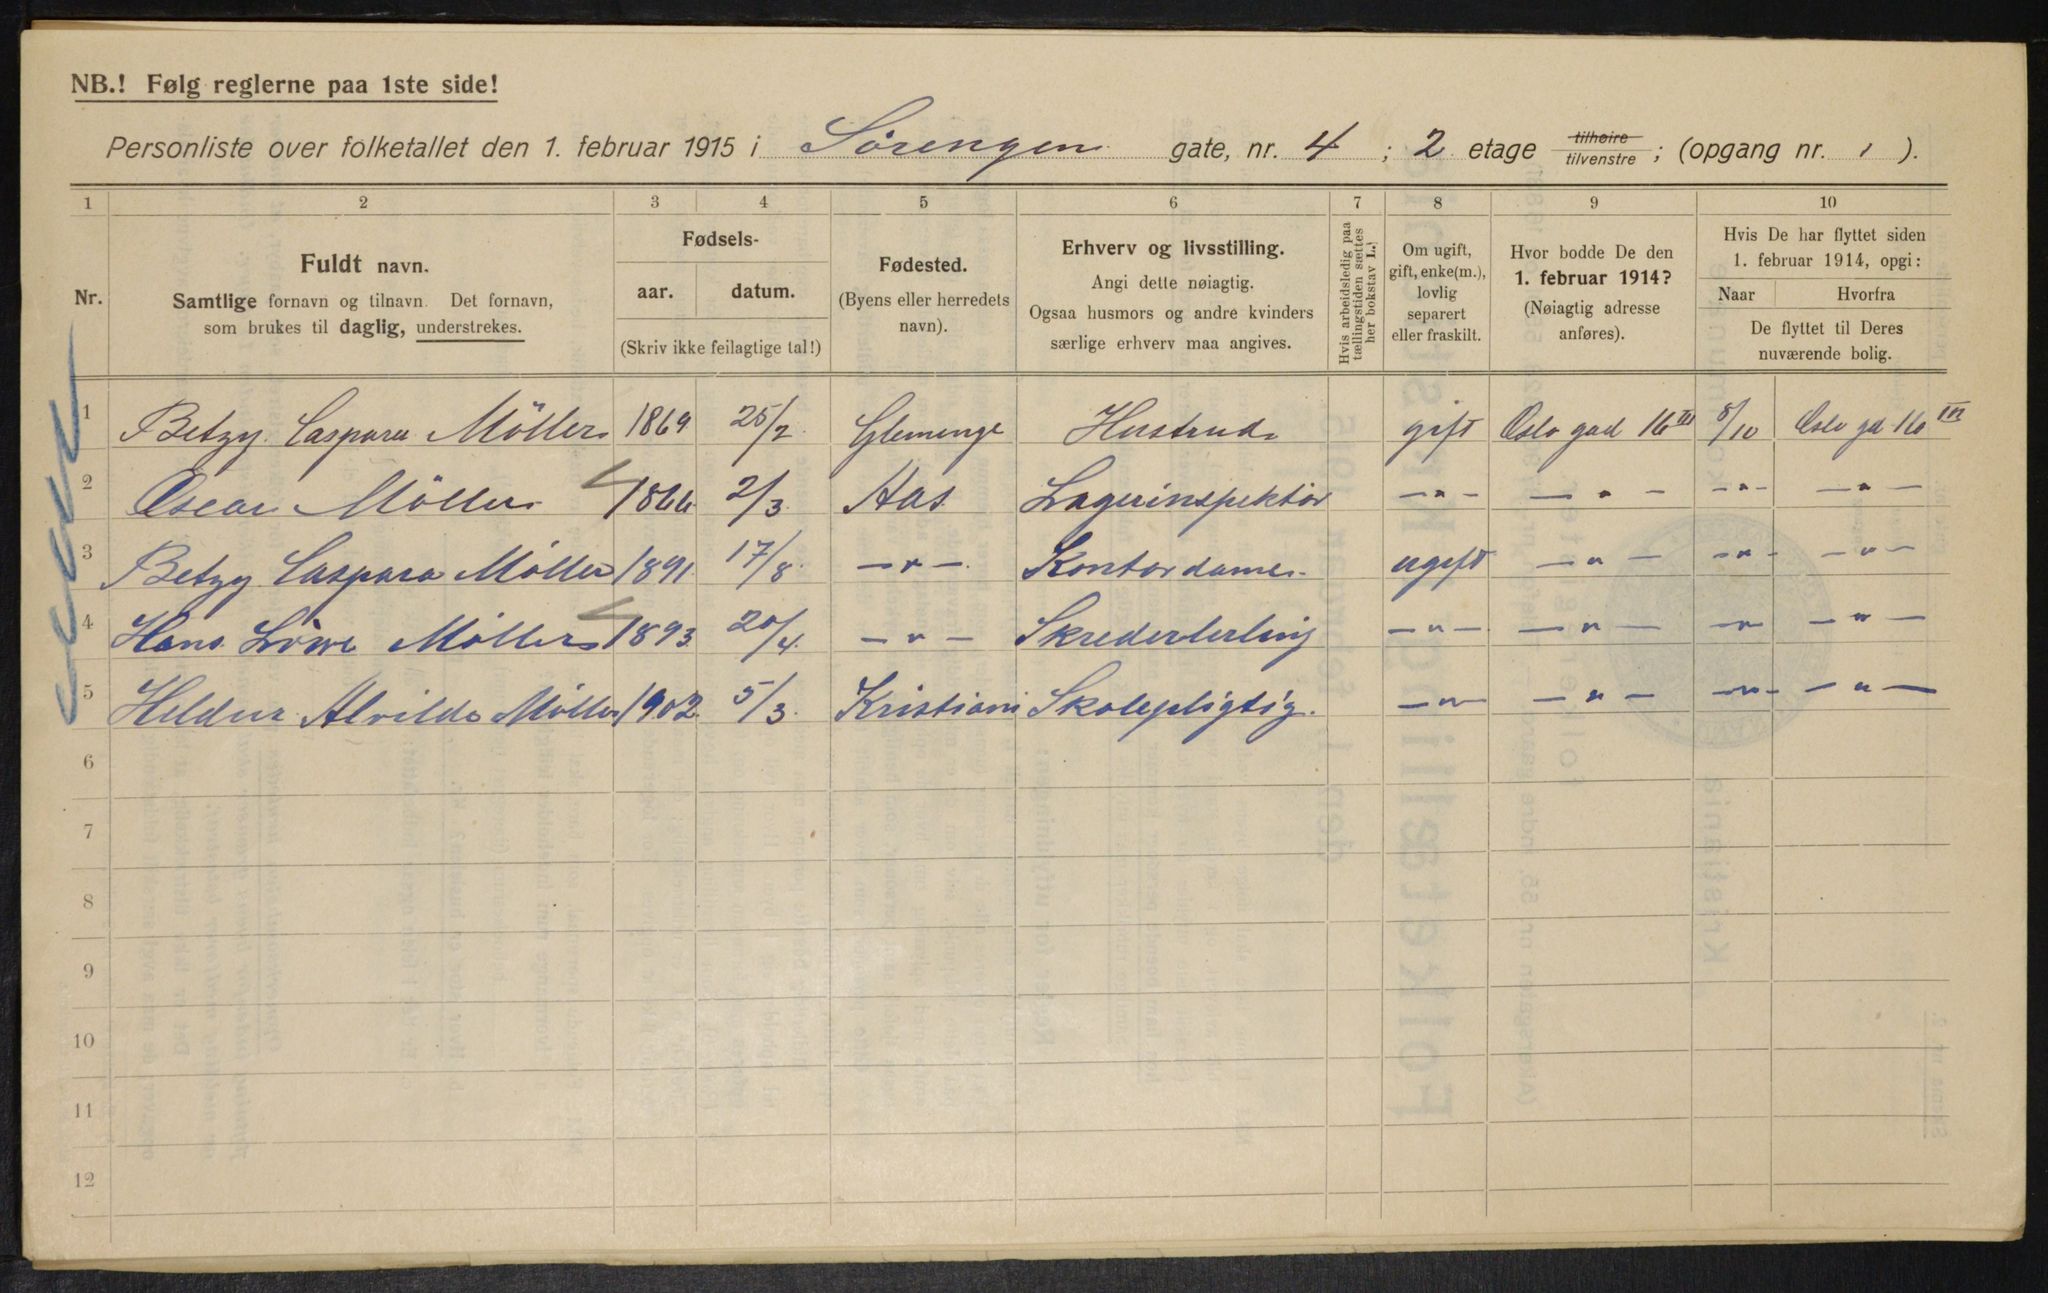 NB.! Følg reglerne paa 1ste side!
Personliste over folketallet den 1. februar 1915 i Sørengen gate, nr. 4 ; 2 etage tilhøire tilvenstre ; (opgang nr. 1 ).
1 2 3 4 5 6 7 8 9 10
Nr.
Fuldt navn.
Samtlige fornavn og tilnavn. Det fornavn,
som brukes til daglig, understrekes.
Fødsels-
aar. datum.
(Skriv ikke feilagtige tal!)
Fødested.
(Byens eller herredets
navn).
Erhverv og livsstilling.
Angi dette nøiagtig.
Ogsaa husmors og andre kvinders
særlige erhverv maa angives.
Hvis arbeidsledig paa
tællingstiden sættes
her bokstav L.
Om ugift,
gift, enke(m.),
lovlig
separert
eller fraskilt.
Hvor bodde De den
1. februar 1914?
(Nøiagtig adresse
anføres).
Hvis De har flyttet siden
1. februar 1914, opgi:
Naar Hvorfra
De flyttet til Deres
nuværende bolig.
1 Betzy Caspara Möller 1869 25/2 Gleminge Hustru gift Oslo gad 16 III 8/10 Oslo gd 16 III
2 Oscar Möller 1866 2/3 Aas Lagerinspektör —"— —"— —"— —"—
3 Betzy Caspara Möller 1891 17/8 —"— Kontordame ugift —"— —"— —"—
4 Hans Löwe Möller 1893 20/4 —"— Skrederlerling —"— —"— —"— —"—
5 Alvilde Möller 1902 5/3 Kristiani Skolepligtig. —"— —"— —"— —"—
6
7
8
9
10
11
12